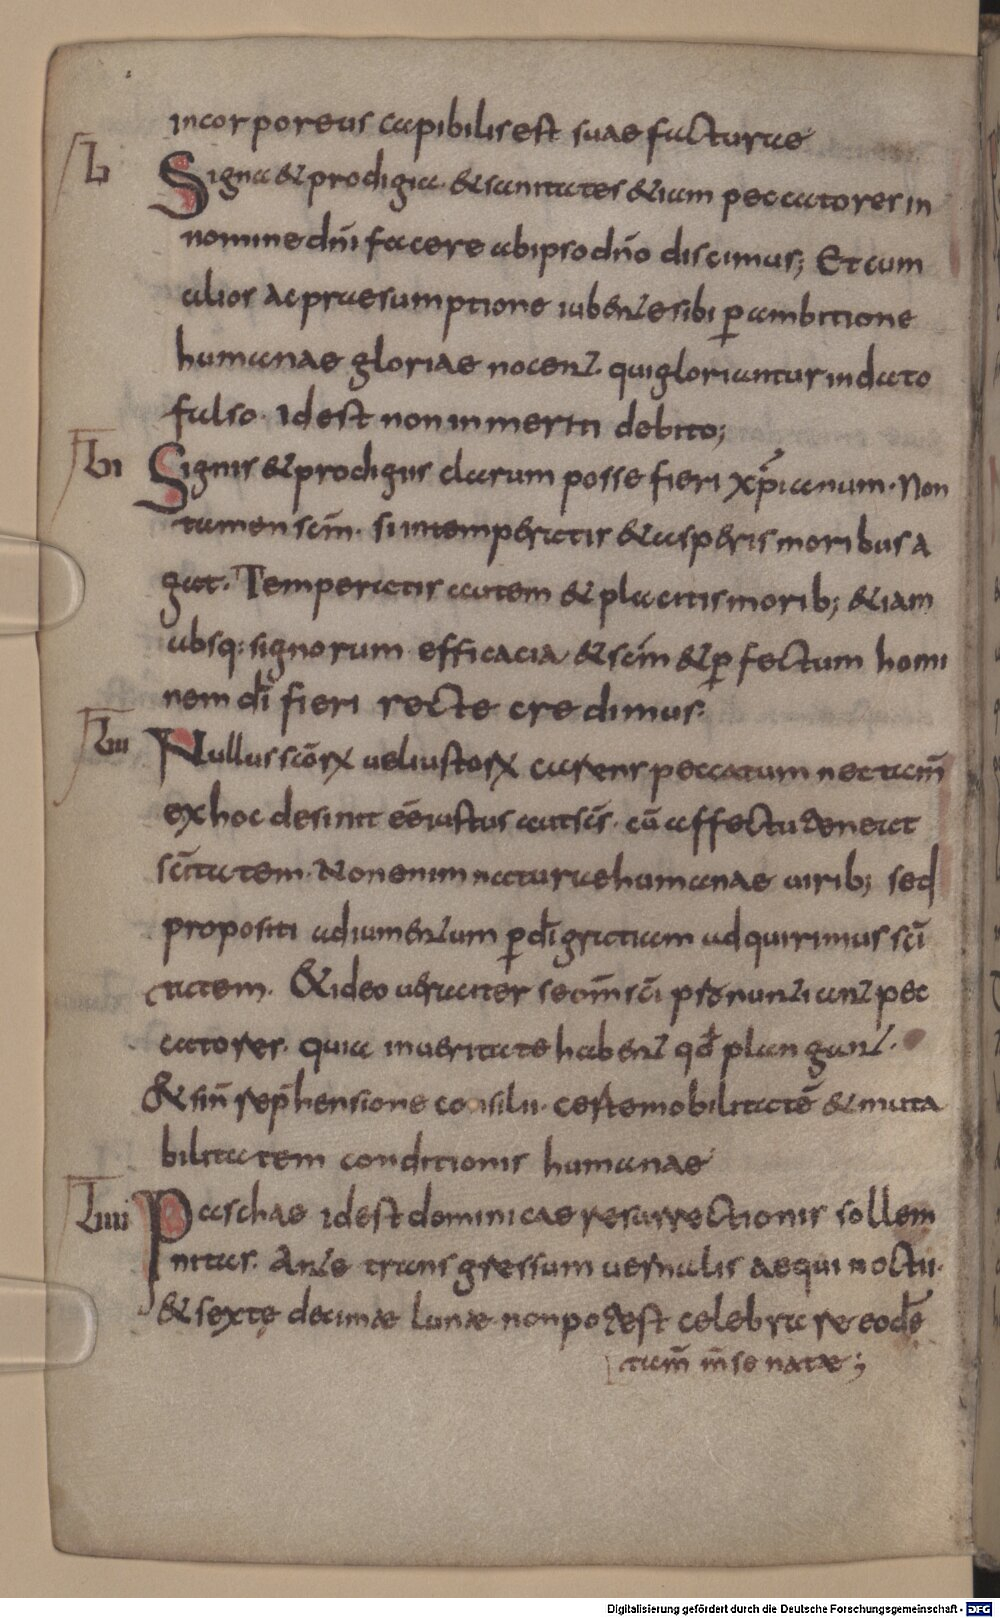 incorporeus capibilis est suae facturae
L Signa & prodigia & sanitates &iam peccatores in
nomine dn̄i facere ab ipso dn̄o discimus; Et cum
alios ac praesumptione iubente sibi ꝑ ambitione
humanae gloriae nocent. qui gloriantur in dato
falso. Idest non in meriti debito;
LI Signis & prodigiis clarum posse fieri xp̄ianum. Non
tamen sc̄m. si intemperatis & asperis moribus a
gat. Temperatis autem & placitis morib; &iam
absq; signorum efficacia & sc̄m & ꝑfectum homi
nem dī fieri recte credimus.
LII Nullus sc̄orꝝ uel iustorꝝ carens peccatum nec tam̄
ex hoc desinit ēe iustus aut sc̄s. cū affectu teneat
sc̄itatem. Non enim naturae humanae uirib; sed
propositi adiumentum ꝑ dī gratiam adquirimus sc̄i
tatem. & ideo ueraciter se om̄s sc̄i pronuntiant pec
catores. quia in ueritate habent qd̄ plangant.
& sin̄ rep̄hensione consilii. certe mobilitatē & muta
bilitatem conditionis humanae
LIIII Paschae idest dominicae resurrectionis sollem
nitas. Ante transgressum uernalis aequinoctii.
& sexte decimæ lunæ non potest celebrare eodē
tam̄ in se natæ;
Digitalisierung gefördert durch die Deutsche Forschungsgemeinschaft - DFG